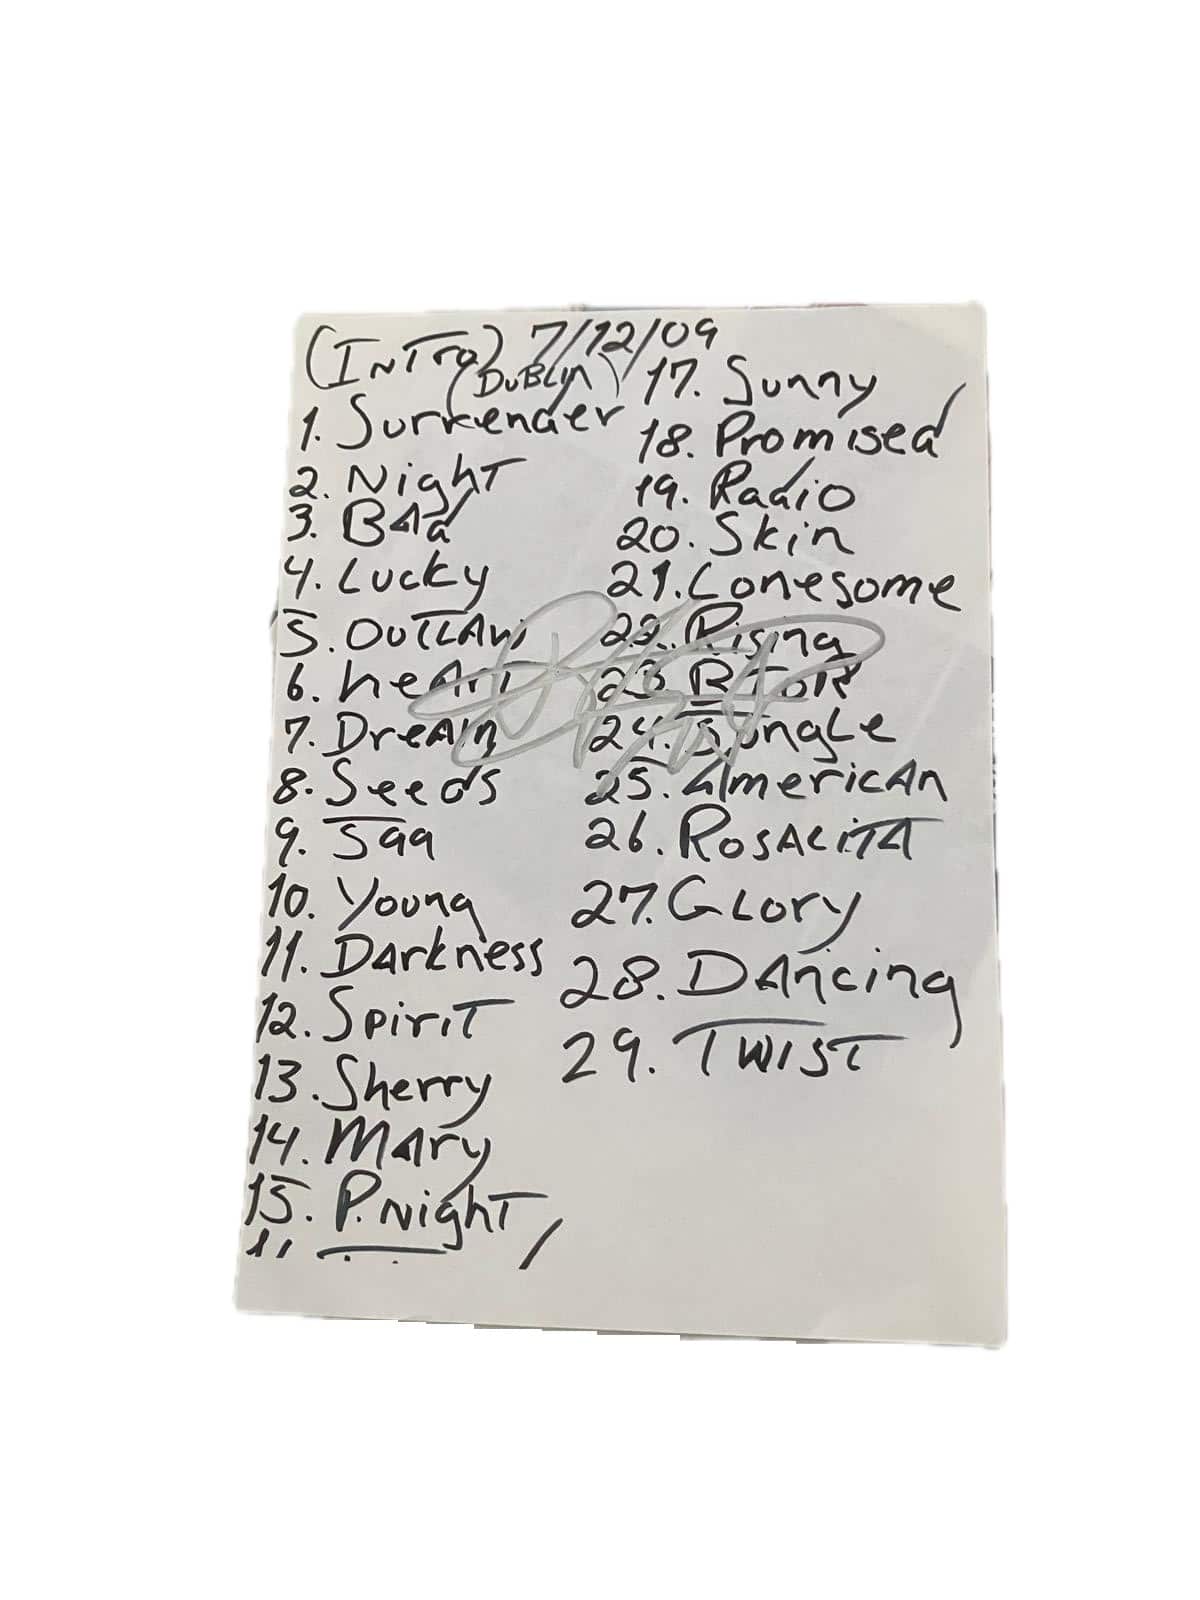 (INTRO) 7/12/09
(DUBLIN)
1. Surrender
2. Night
3. BAd
4. Lucky
5. OUTLAW
6. heArt
7. DreAm
8. Seeds
9. J99
10. Young
11. DArkness
12. SpiriT
13. Sherry
14. MAry
15. P. NighT
17. Sunny
18. Promised
19. Radio
20. Skin
21. Lonesome
22. Rising
23. BTOR
24. Jungle
25. AmericAn
26. ROSALiTA
27. GLory
28. DAncing
29. TWIST